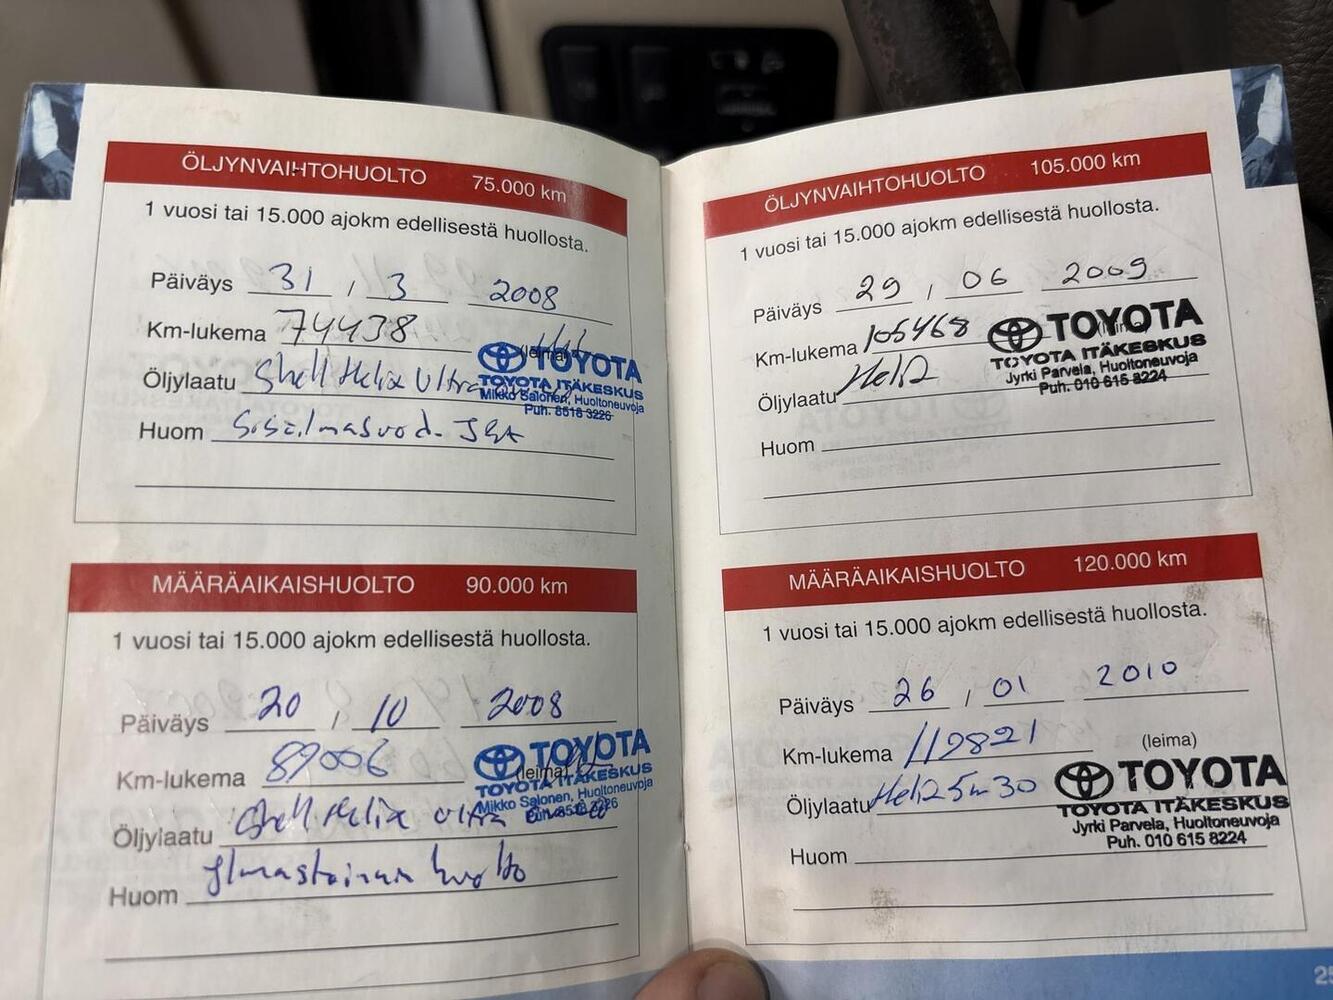 ÖLJYNVAIHTOHUOLTO 75.000 km
1 vuosi tai 15.000 ajokm edellisestä huollosta.
Päiväys 31 , 3 2008
Km-lukema 74438
(leima)
TOYOTA
Öljylaatu Shell Helix Ultra
TOYOTA ITÄKESKUS
Mikko Salonen, Huoltoneuvoja
Puh. 8518 3226
Huom
MÄÄRÄAIKAISHUOLTO 90.000 km
1 vuosi tai 15.000 ajokm edellisestä huollosta.
Päiväys 20 , 10 2008
Km-lukema 89006
(leima)
TOYOTA
TOYOTA ITÄKESKUS
Mikko Salonen, Huoltoneuvoja
Puh. 8518 3226
Öljylaatu Shell Helix Ultra
Huom huolto
ÖLJYNVAIHTOHUOLTO 105.000 km
1 vuosi tai 15.000 ajokm edellisestä huollosta.
Päiväys 29 , 06 2009
Km-lukema 105468
TOYOTA
TOYOTA ITÄKESKUS
Jyrki Parvela, Huoltoneuvoja
Puh. 010 615 8224
Öljylaatu
Huom
MÄÄRÄAIKAISHUOLTO 120.000 km
1 vuosi tai 15.000 ajokm edellisestä huollosta.
Päiväys 26 , 01 2010
Km-lukema 119821
(leima)
TOYOTA
TOYOTA ITÄKESKUS
Jyrki Parvela, Huoltoneuvoja
Puh. 010 615 8224
Öljylaatu
Huom